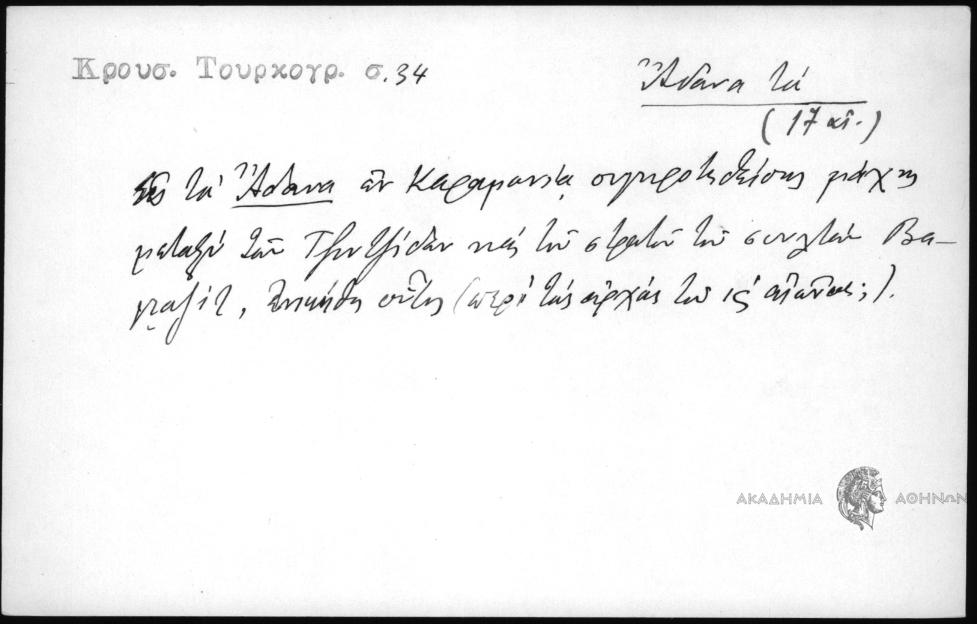 Κρουσ. Τουρκογρ. σ. 34
Ἄδανα τά
(17 αἰ.)
τὰ Ἄδανα ἐν Καραμανίᾳ συγκροτηθείσης μάχης
μεταξὺ τῶν καὶ τοῦ στρατοῦ τοῦ σουλτὰν Βα-
γιαζίτ, ἐνικήθη οὗτος (περὶ τὰς ἀρχὰς τοῦ ις΄ αἰῶνος;).
ΑΚΑΔΗΜΙΑ ΑΘΗΝΩΝ